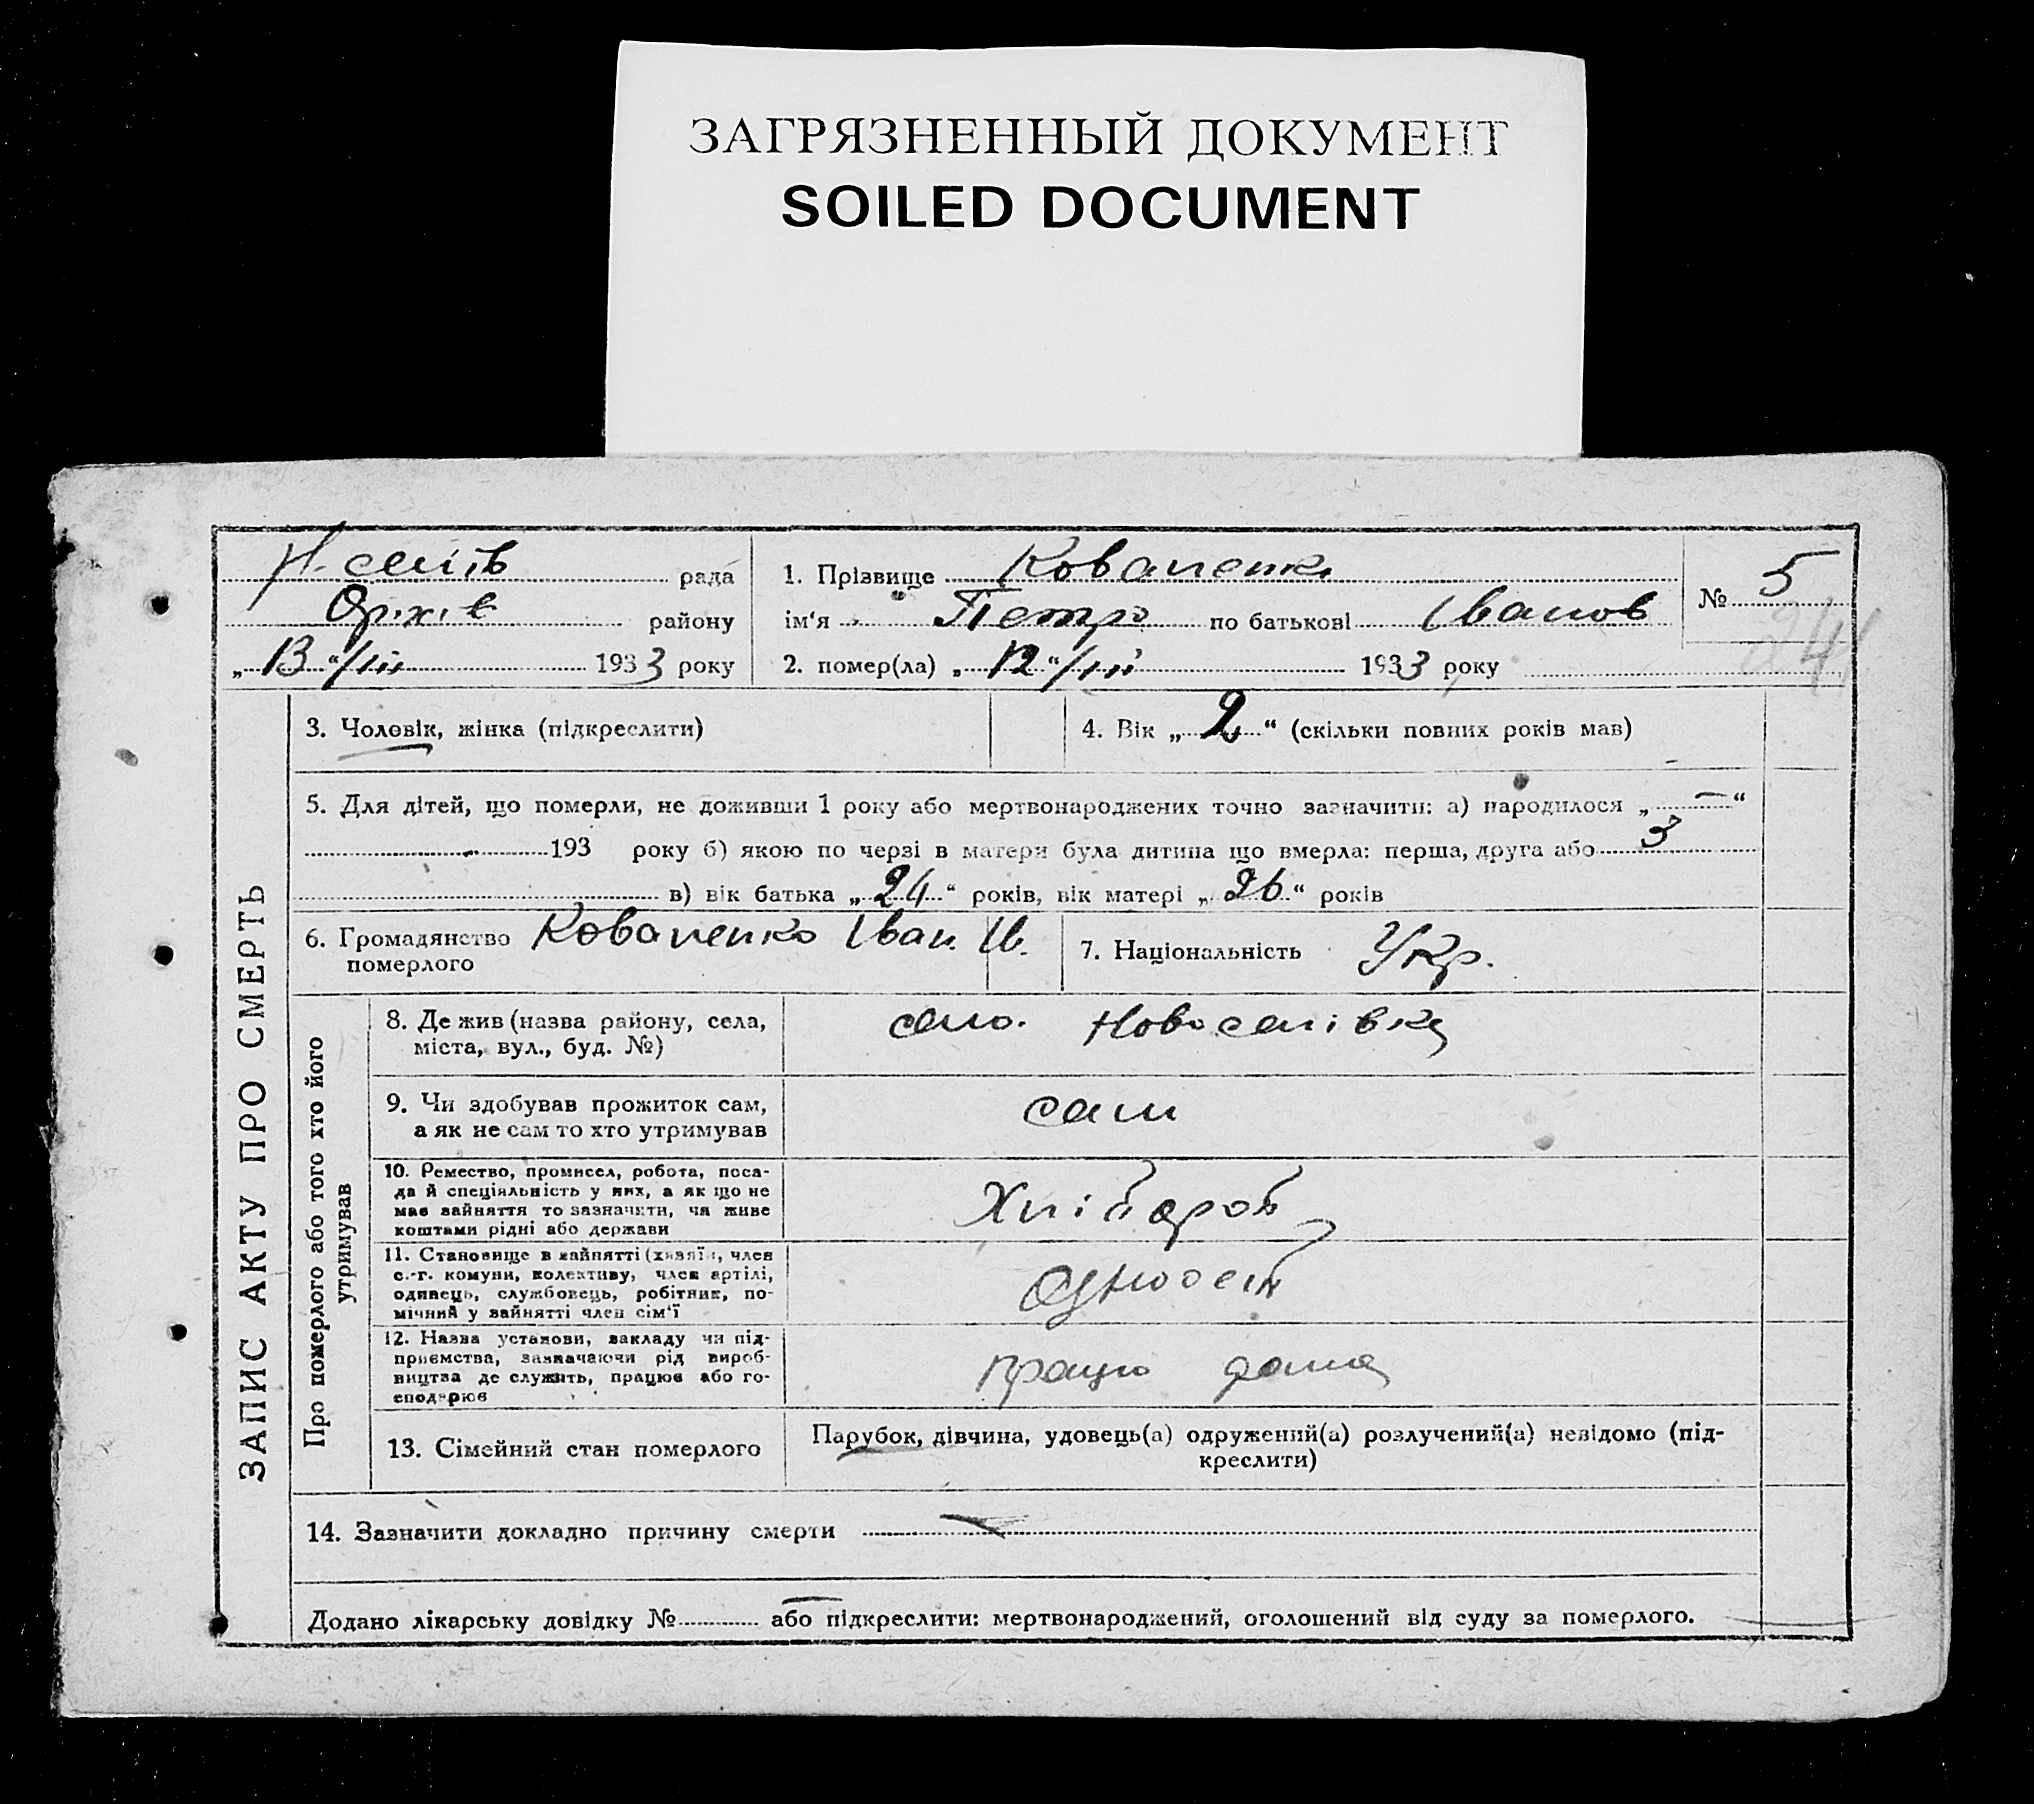 ЗАГРЯЗНЕННЫЙ ДОКУМЕНТ
SOILED DOCUMENT
Н. селів рада
Оріхів району
„13“/III 1933 року
1. Прізвище Коваленко
ім‘я Петро по батькові Іванов
2. помер(ла) „12“/III 1933 року
№ 5
24
ЗАПИС АКТУ ПРО СМЕРТЬ
3. Чоловік, жінка (підкреслити)
4. Вік „2“ (скільки повних років мав)
5. Для дітей, що померли, не доживши 1 року або мертвонароджених точно зазначити: а) народилося „—“
193 року б) якою по черзі в матери була дитина що вмерла: перша, друга або 3
в) вік батька „24“ років, вік матері „26“ років
6. Громадянство
померлого
Коваленко Іван Ів.
7. Національність Укр.
Про померлого або того хто його
утримував
8. Де жив (назва району, села,
міста, вул., буд. №)
село. Новоселівка
9. Чи здобував прожиток сам,
а як не сам то хто утримував
сам
10. Ремество, промисел, робота, поса-
да й спеціяльність у них, а як що не
має зайняття то зазначити, чи живе
коштами рідні або держави
Хлібороб
11. Становище в зайнятті (хазяїн, член
с.-г. комуни, колективу, член артілі,
одинець, службовець, робітник, по-
мічний у зайнятті член сім‘ї
12. Назва установи, закладу чи під-
приємства, зазначаючи рід вироб-
ництва де служить, працює або го-
сподарює
працю дома
13. Сімейний стан померлого
Парубок, дівчина, удовець(а) одружений(а) розлучений(а) невідомо (під-
креслити)
14. Зазначити докладно причину смерти
Додано лікарську довідку № або підкреслити: мертвонароджений, оголошений від суду за померлого.